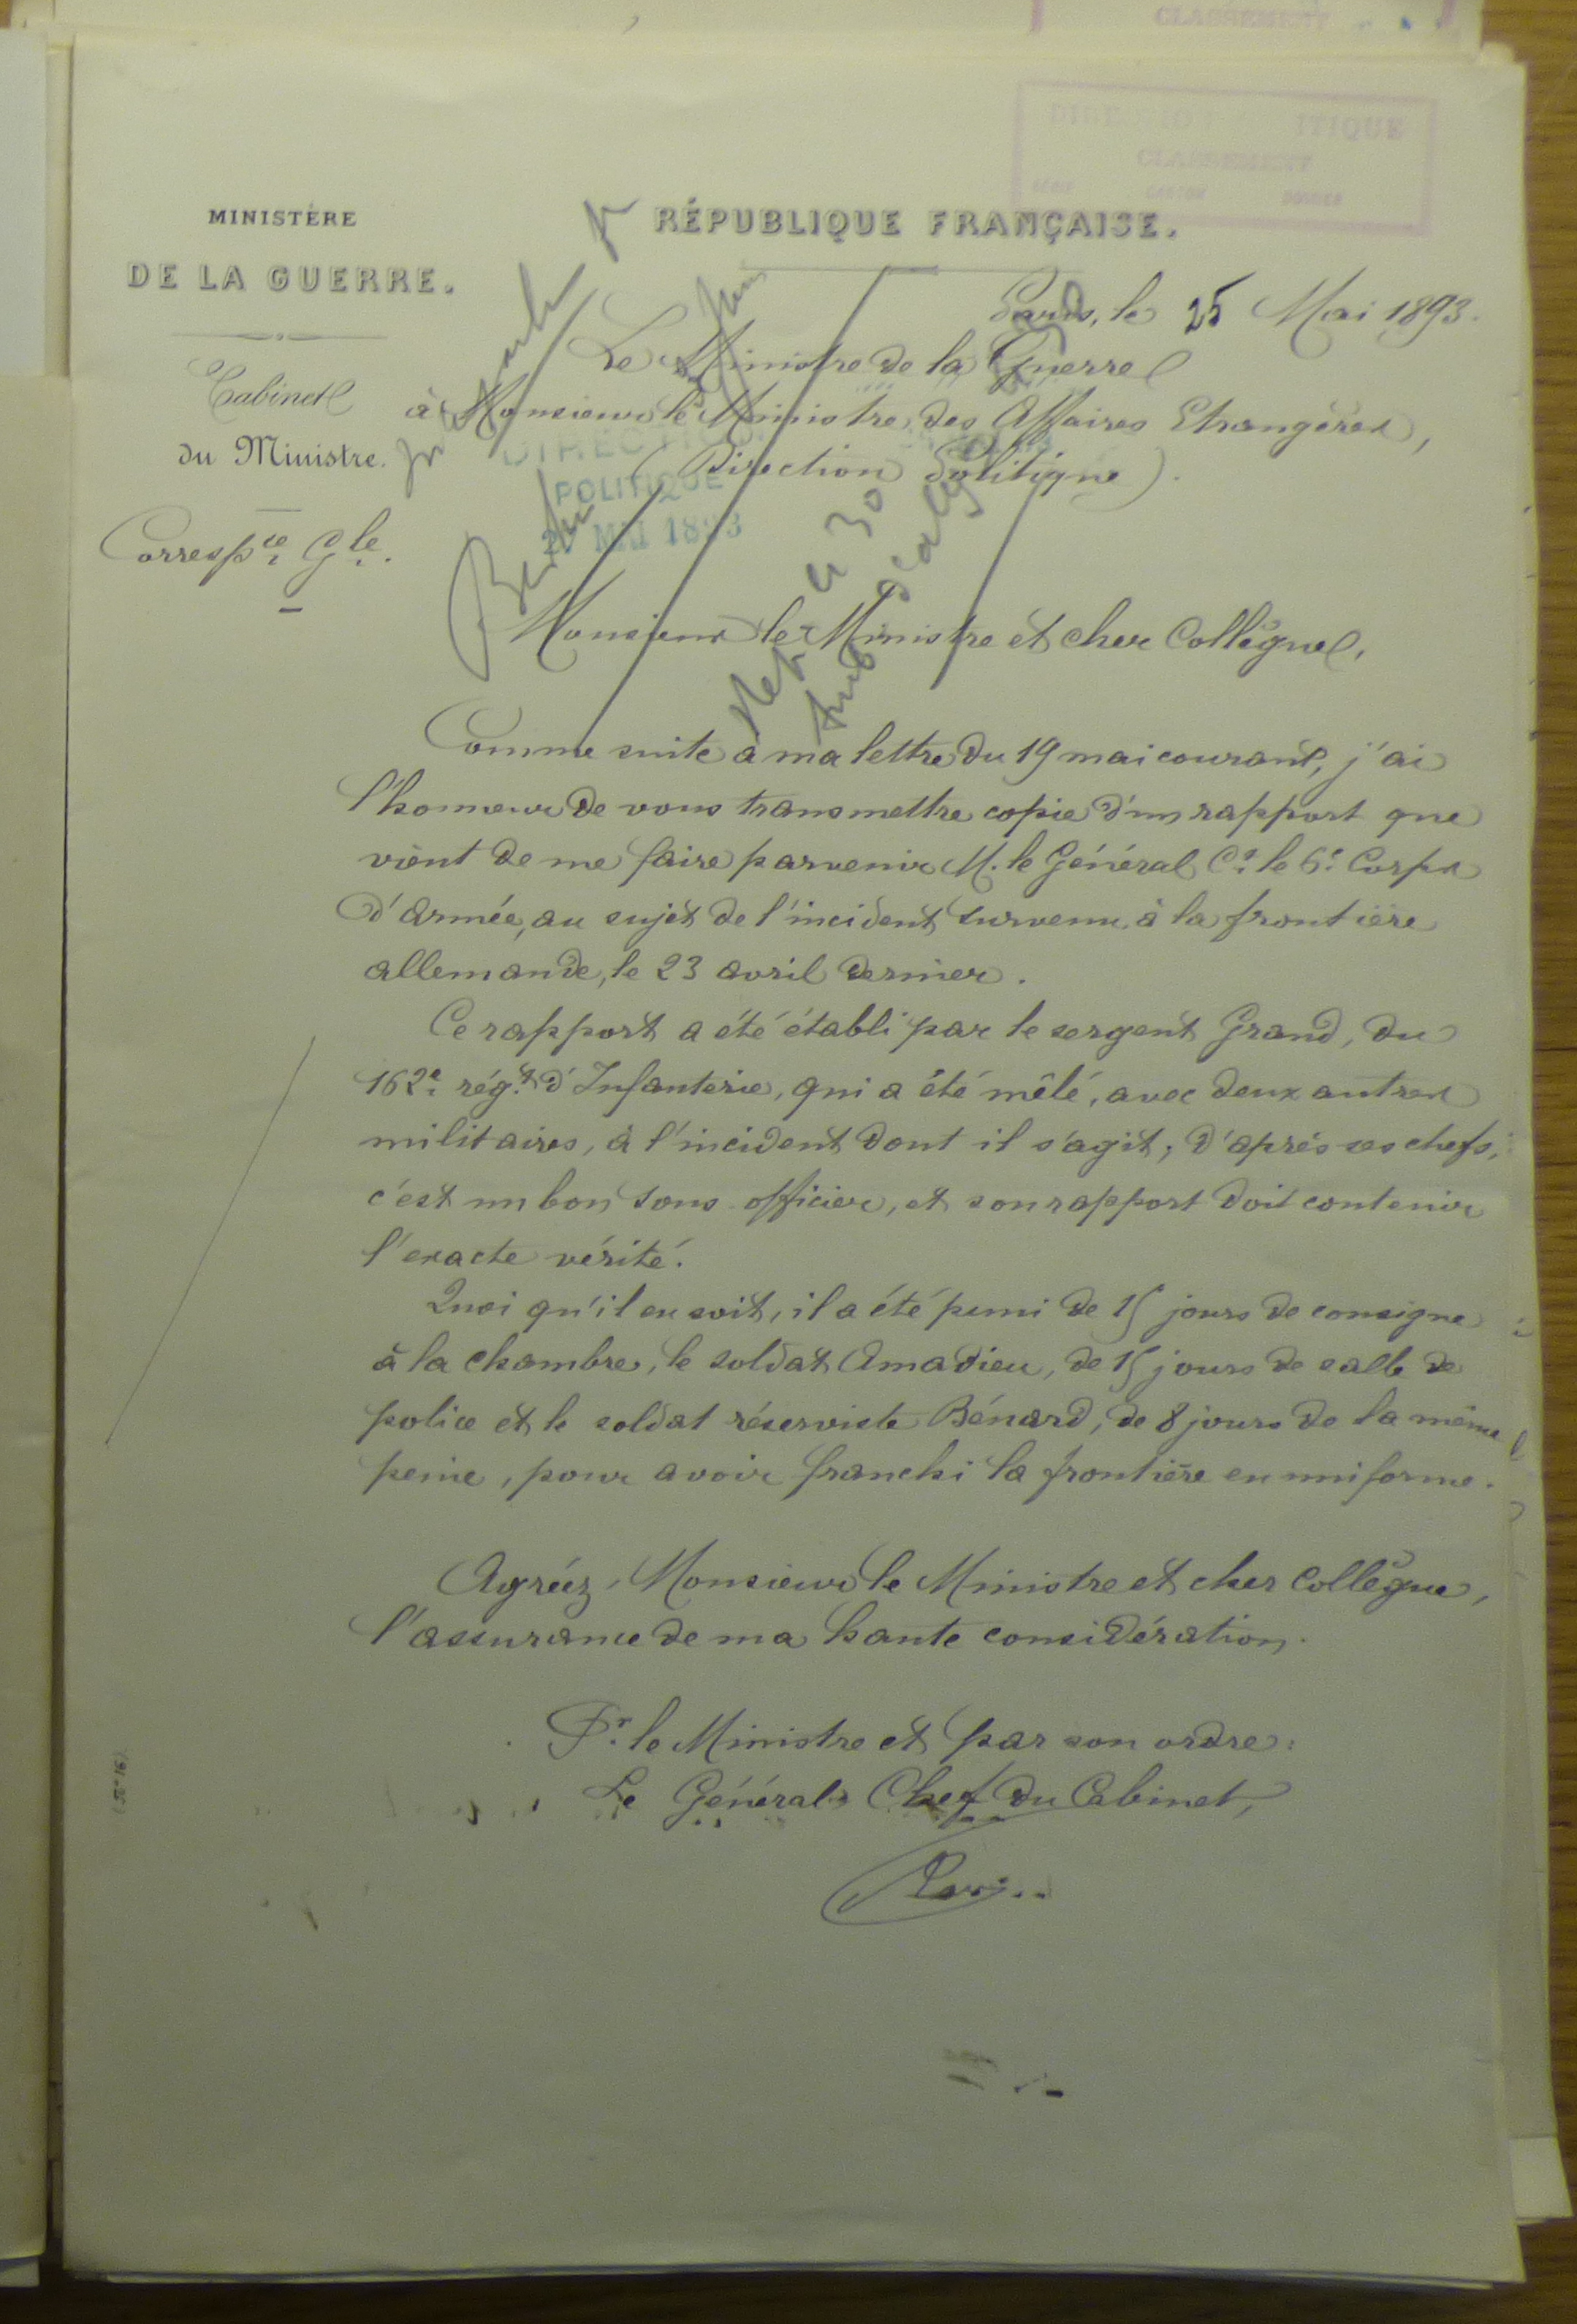 CLASSEMENT
DIRECTION POLITIQUE
CLASSEMENT
SÉRIE CARTON DOSSIER
MINISTÈRE
DE LA GUERRE.
RÉPUBLIQUE FRANÇAISE.
Cabinet
du Ministre.
Corresp.ce G.le.
Paris, le 25 Mai 1893.
Le Ministre de la Guerre
à Monsieur le Ministre des Affaires Etrangères,
(Direction Politique).
DIRECTION
POLITIQUE
MAI 1893
Berlin
Monsieur le Ministre et cher Collègue,
Comme suite à ma lettre du 19 mai courant, j'ai
l'honneur de vous transmettre copie d'un rapport que
vient de me faire parvenir M. le Général C.t le 6.e Corps
d'armée, au sujet de l'incident survenu à la frontière
allemande, le 23 avril dernier.
Ce rapport a été établi par le sergent Grand, du
162.e rég.t d'Infanterie, qui a été mêlé, avec deux autres
militaires, à l'incident dont il s'agit; d'après ses chefs,
c'est un bon sous-officier, et son rapport doit contenir
l'exacte vérité.
Quoi qu'il en soit, il a été puni de 15 jours de consigne
à la chambre, le soldat Amadieu, de 15 jours de salle de
police et le soldat réserviste Bénard, de 8 jours de la même
peine, pour avoir franchi la frontière en uniforme.
Agréez, Monsieur le Ministre et cher Collègue,
l'assurance de ma haute considération.
P.r le Ministre et par son ordre:
Le Général Chef du Cabinet,